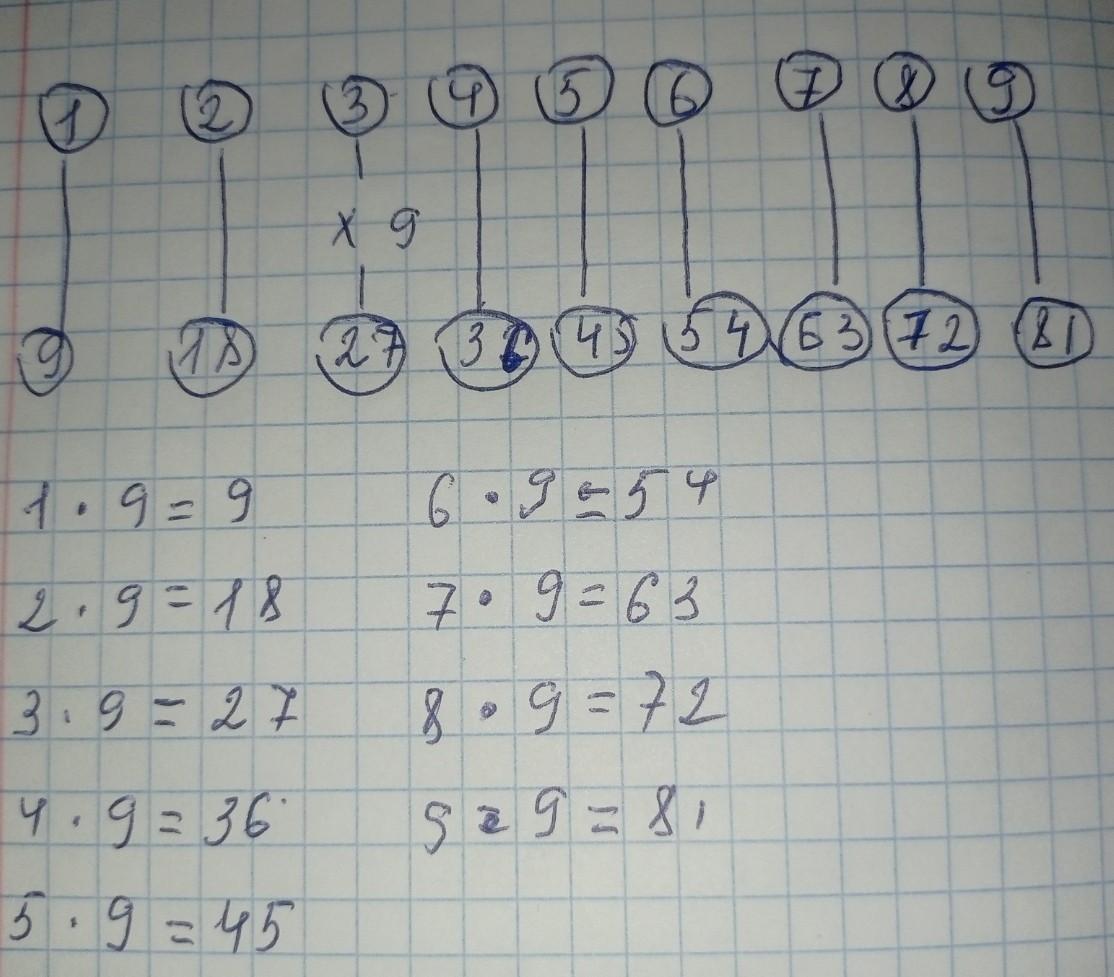 1 2 3 4 5 6 7 8 9
x 9
9 18 27 36 45 54 63 72 81
1 · 9 = 9
2 · 9 = 18
3 · 9 = 27
4 · 9 = 36
5 · 9 = 45
6 · 9 = 54
7 · 9 = 63
8 · 9 = 72
9 · 9 = 81